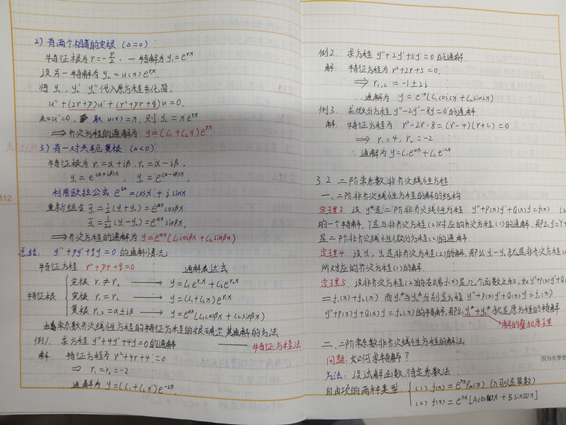 2) 有两个相等的实根 (Δ=0):
特征根为 r=-p/2, 一特解为 y₁=e^{rx}
设另一特解为 y₂=u(x)e^{rx}
将 y₂ y₂' y₂'' 代入原方程并化简
u''+(2r+p)u'+(r²+pr+q)u=0.
u''=0, 取 u(x)=x, 则 y₂=xe^{rx}
⇒齐次方程的通解为 y=(C₁+C₂x)e^{rx}
3) 有一对共轭复根 (Δ<0)
特征根为 r₁=α+iβ, r₂=α-iβ,
y₁=e^{(α+iβ)x} y₂=e^{(α-iβ)x}
利用欧拉公式 e^{ix}=cosx+isinx
重新组合 ȳ₁=1/2(y₁+y₂)=e^{αx}cosβx
ȳ₂=1/2i(y₁-y₂)=e^{αx}sinβx
⇒齐次方程的通解为 y=e^{αx}(C₁cosβx+C₂sinβx)
总结: y''+py'+qy=0 的通解情况
特征方程 r²+pr+q=0 通解表达式
实根 r₁≠r₂ → y=C₁e^{r₁x}+C₂e^{r₂x}
特征根 实根 r₁=r₂ → y=(C₁+C₂x)e^{r₁x}
复根 r₁,₂=α±iβ → y=e^{αx}(C₁cosβx+C₂sinβx)
由常系数齐次线性方程的特征方程的根确定其通解的方法
→特征方程法
例1. 求方程 y''+4y'+4y=0 的通解
解: 特征方程为 r²+4r+4=0
⇒ r₁=r₂=-2
∴通解为 y=(C₁+C₂x)e^{-2x}
例2. 求方程 y''+2y'+5y=0 的通解
解 特征方程为 r²+2r+5=0.
⇒ r₁,₂=-1±2i
∴通解为 y=e^{-x}(C₁cos2x+C₂sin2x)
例3. 求微分方程 y''-2y'-8y=0 的通解
解. 特征方程为 r²-2r-8=(r-4)(r+2)=0
⇒ r₁=4, r₂=-2
∴通解为 y=C₁e^{4x}+C₂e^{-2x}
3.2 二阶常系数非齐次线性方程
一、二阶非齐次线性方程的解的结构
定理3. 设 y*是二阶非齐次线性方程 y''+P(x)y'+Q(x)y=f(x)
的一个特解, Y是与非齐次方程(2)对应的齐次方程(1)的通解, 那么y=Y+
是二阶非齐次线性微分方程(2)的通解.
定理4. 设y₁, y₂是非齐次方程(2)的解, 那么y₁-y₂就是非齐次方程(2)
所对应的齐次方程(1)的解.
定理5 设非齐次方程(2)的右端f(x)是几个函数之和, 如y''+P(x)y'+Q(x)y
=f₁(x)+f₂(x), 而y₁*与y₂*分别是方程 y''+P(x)y'+Q(x)y=f₁(x)
y''+P(x)y'+Q(x)y=f₂(x)的特解, 那么y₁*+y₂*就是原方程的特解
解的叠加原理
二、二阶常系数非齐次线性方程的解法
问题: 如何求特解?
方法: 设试解函数, 待定系数法
自由项的两种类型 (1) f(x)=e^{λx}Pₘ(x)
(2) f(x)=e^{λx}[Acosωx+Bsinωx]